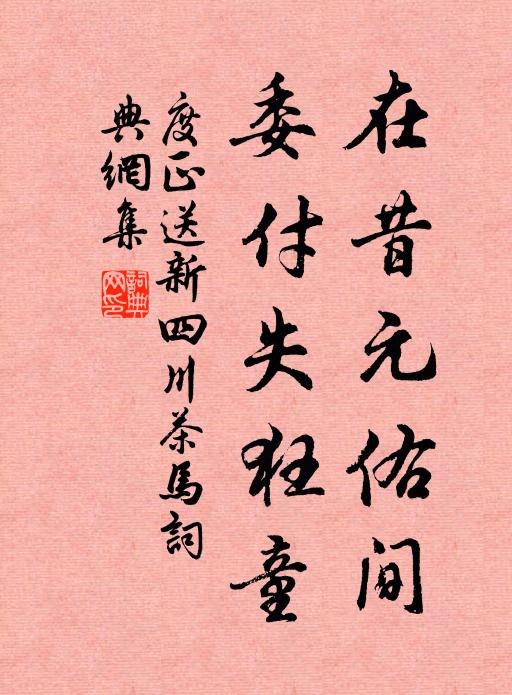 在昔元佑间
委付失狂童
度正送新四川茶馬詞
典網集
詞典網印